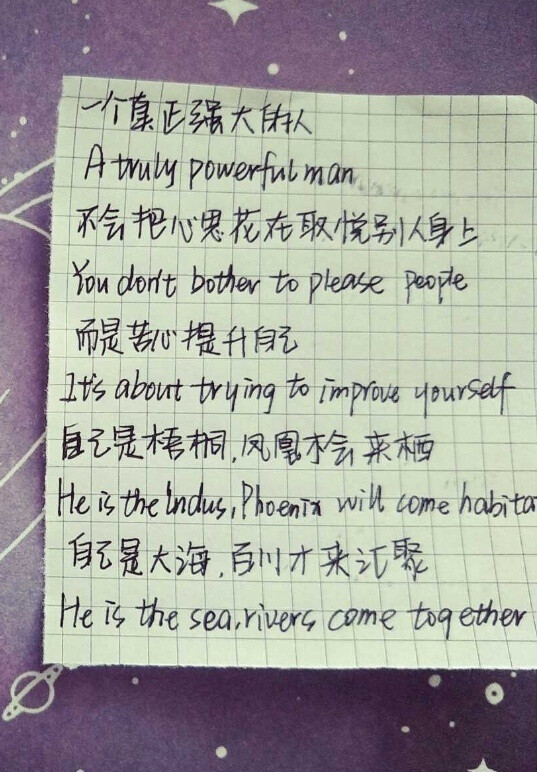 一个真正强大的人
A truly powerful man
不会把心思花在取悦别人身上
You don't bother to please people
而是苦心提升自己
It's about trying to improve yourself
自己是梧桐,凤凰才会来栖
He is the Indus, Phoenix will come habita
自己是大海,百川才来汇聚
He is the sea, rivers come together